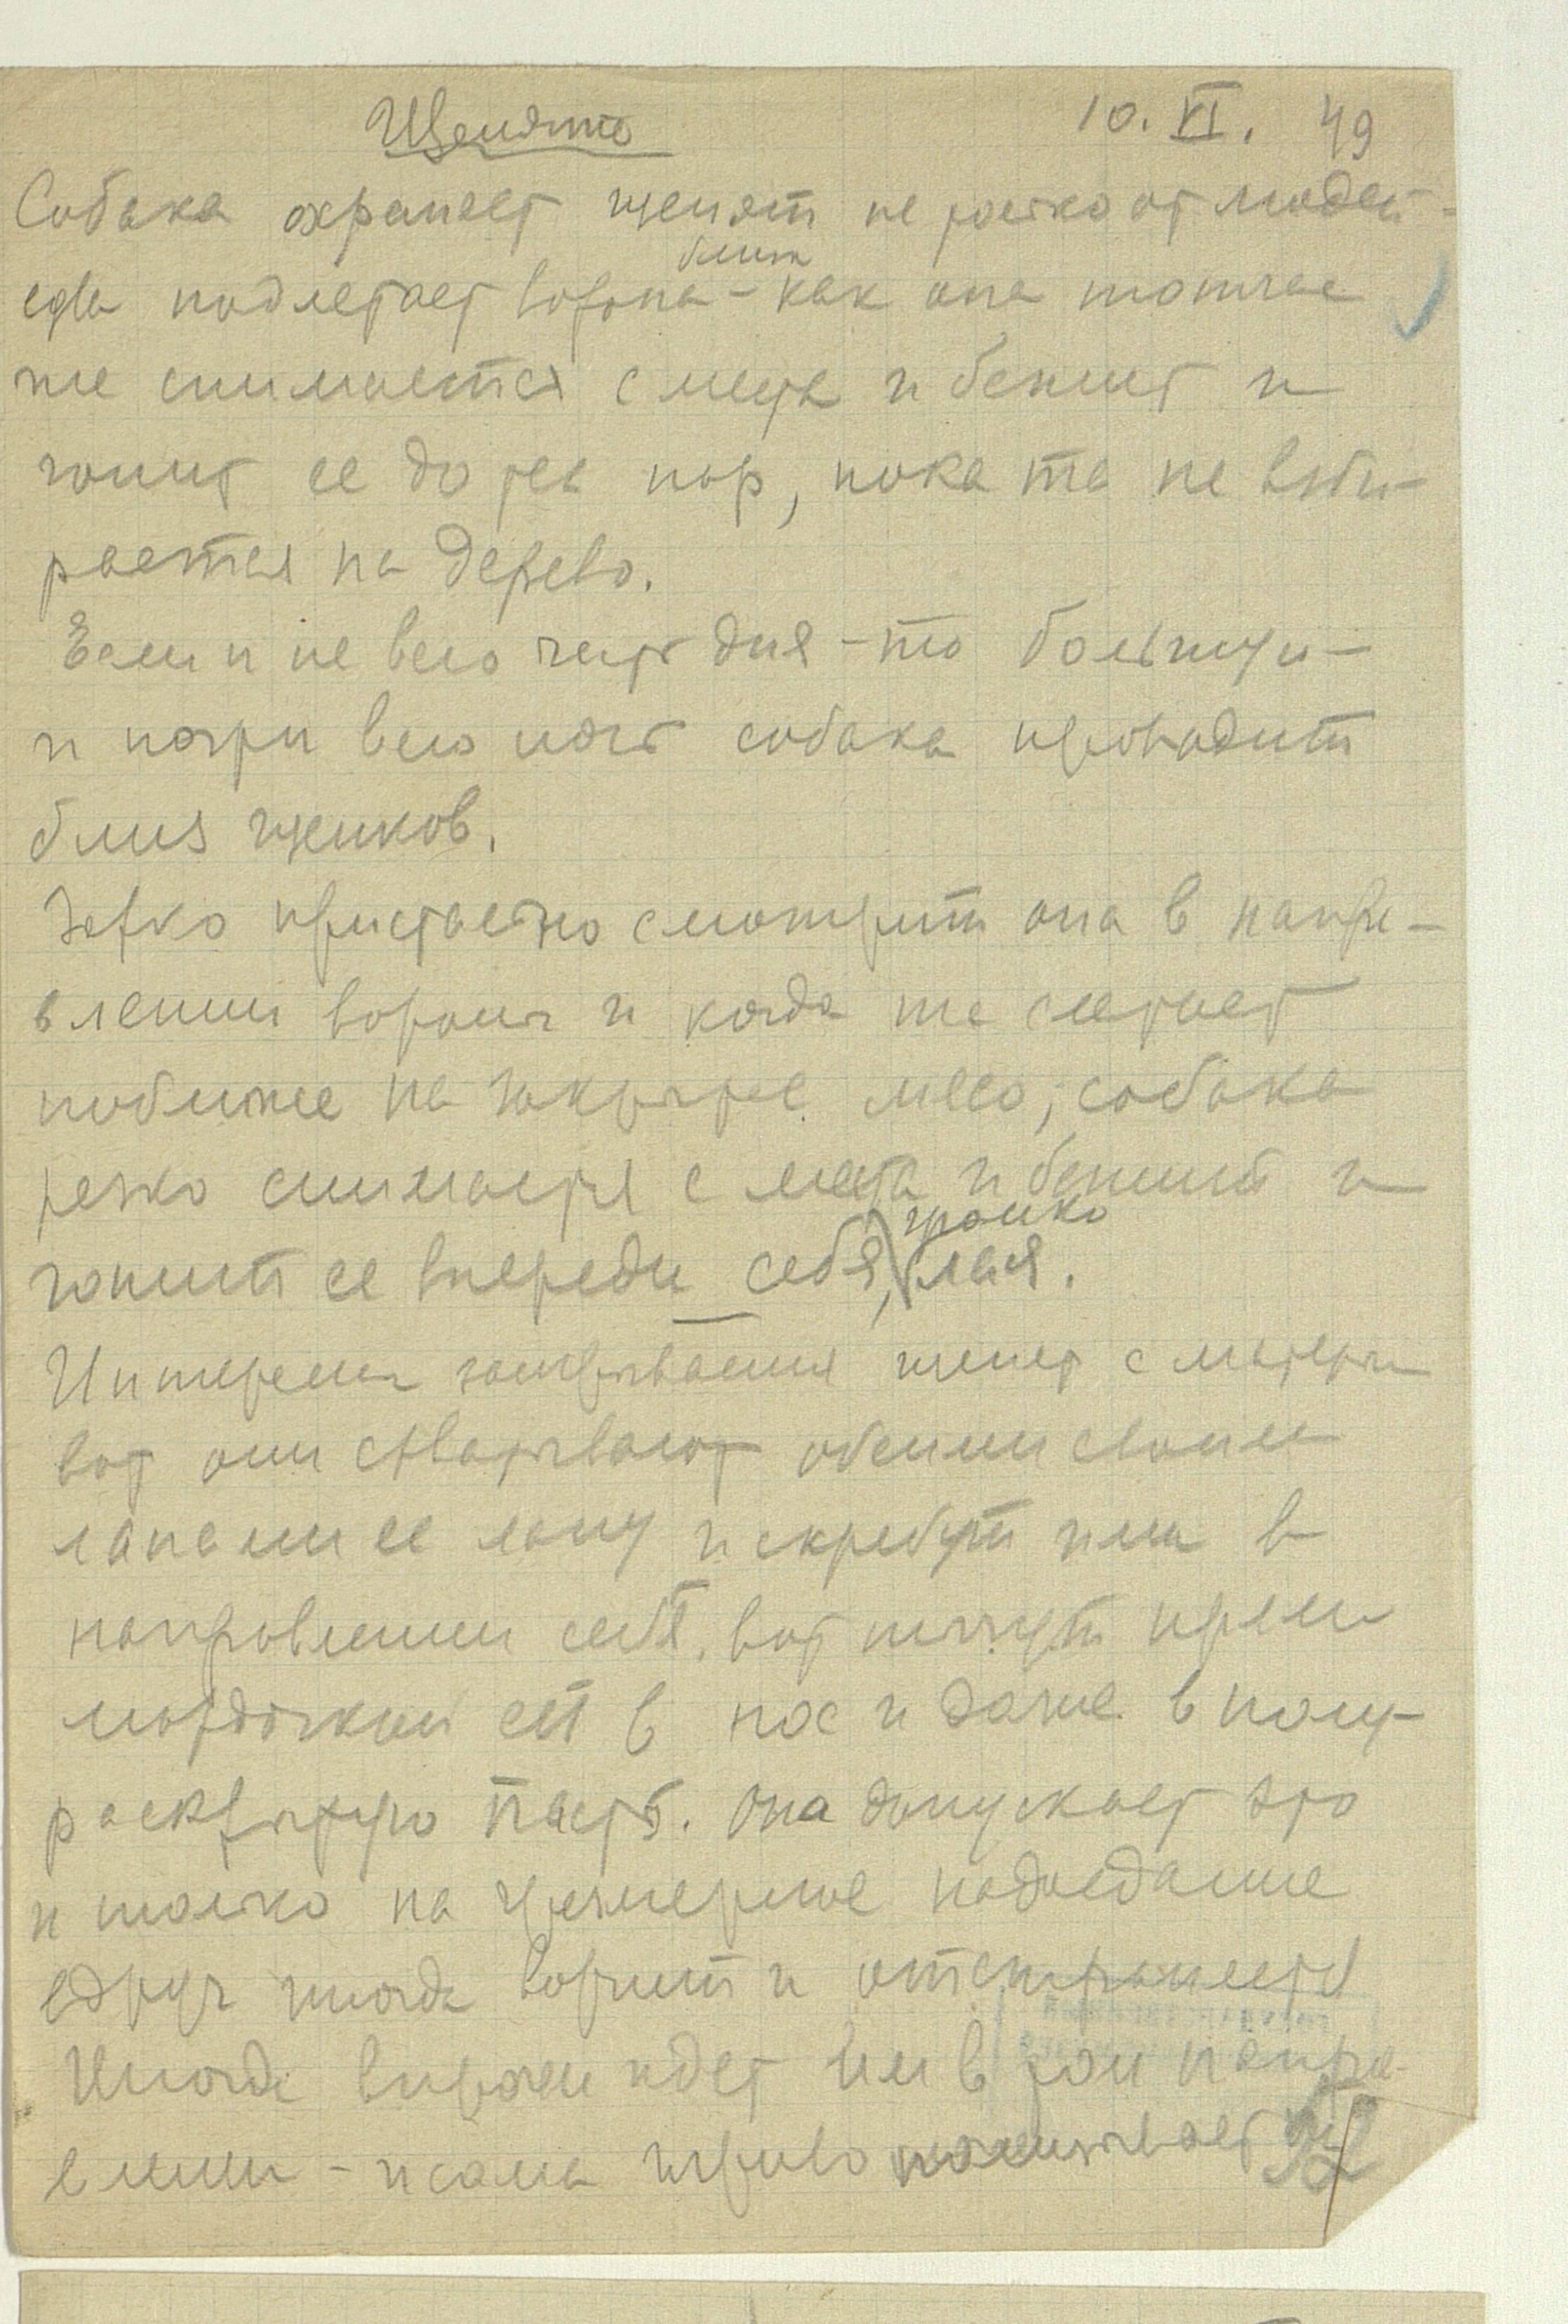 Щенята 10. VI. 49
Собака охраняет щенят не только от людей -
едва подлетает ворона близк - как она тотчас
же снимается с места и бежит и
гонит ее до тех пор, пока та не взби-
рается на дерево.
Если и не всю часть дня - то большую -
и почти всю ночь собака проводит
близ щенков.
Зорко пристально смотрит она в напра-
влении вороны и когда та слетает
поближе на закрытое мясо, собака
резко снимается с места и бежит и
гонит ее впереди себя, громко лая.
Интересны заигрывания щенят с матерью
вот они схватывают обеими своими
лапами ее лапу и скребут ими в
направлении себя, вот тычут прямо
мордочкой ей в нос и даже в полу-
раскрытую пасть. Она допускает это
и только на чрезмерное надоедание
вдруг иногда ворчит и отстраняется
Иногда впрочем идет им в том напра-
влении - и сама игриво